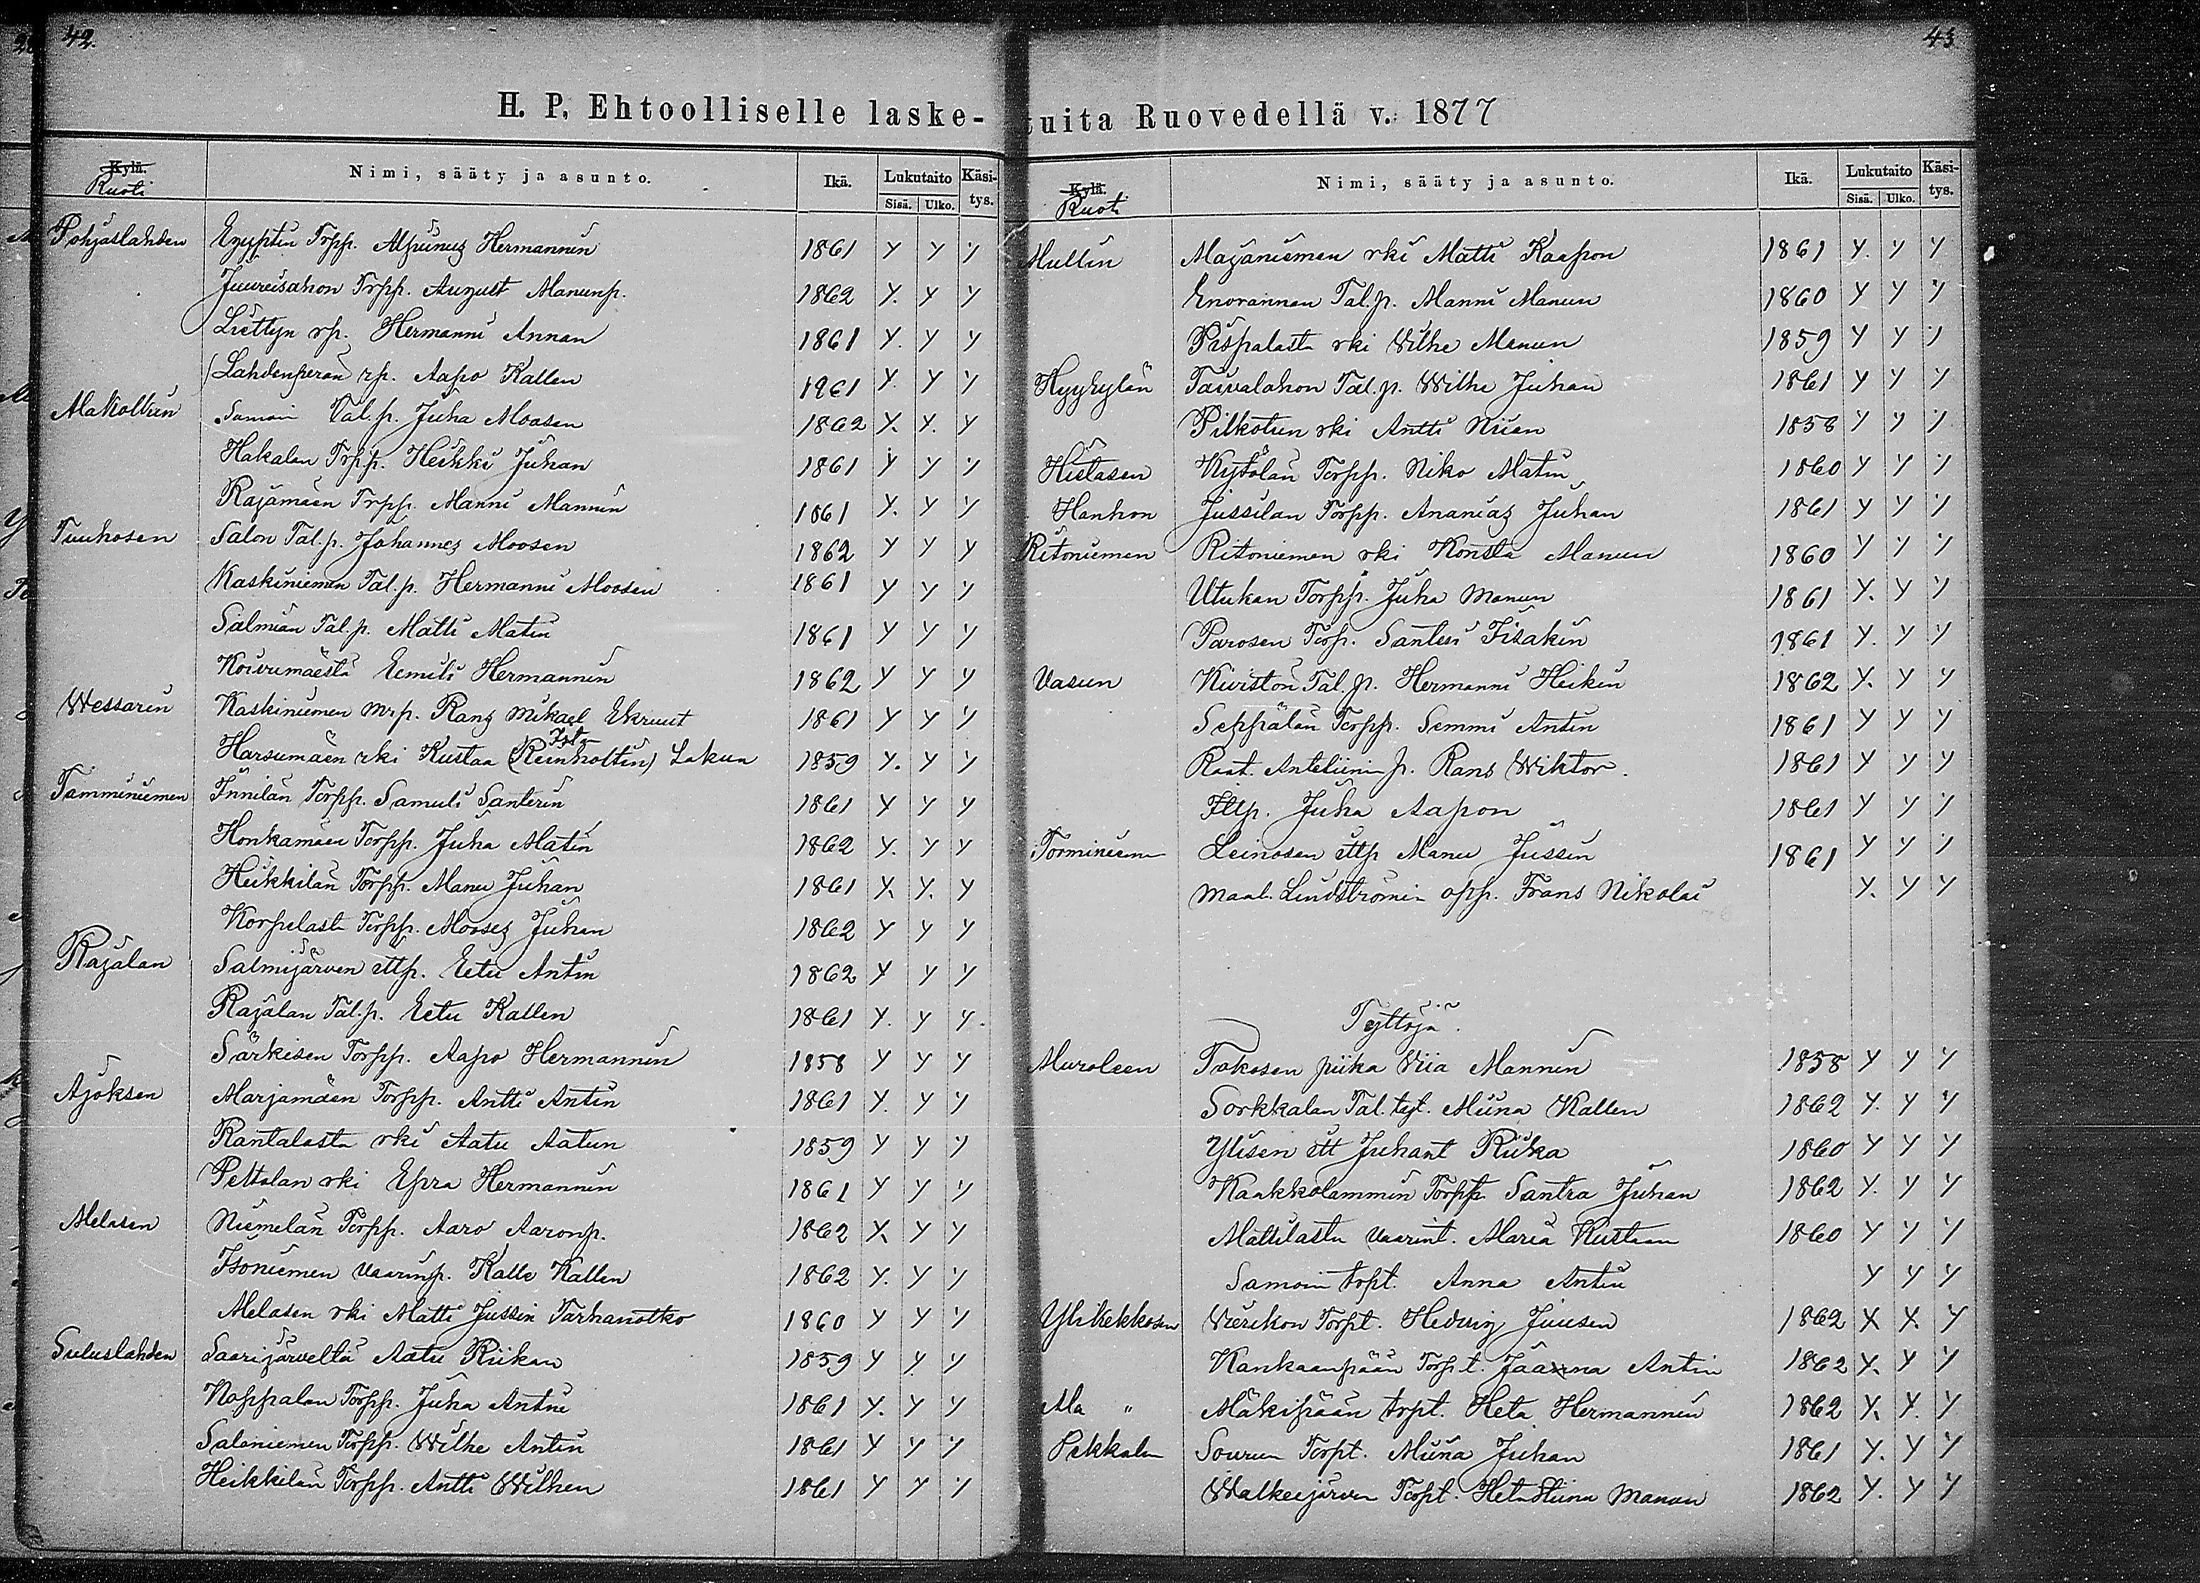 42.
H. P. Ehtoolliselle laske-
Kylä. Ruoti Nimi, sääty ja asunto. Ikä. Lukutaito Käsi-tys.
Sisä. Ulko.
Pohjaslahden Egyptin Trpp. Alpiinus Hermannin 1861 y y y
Juureisahon Trpp. August Manunp. 1862 y. y y
Liettyn rp. Hermanni Annan 1861 y. y y
Lahdenperän rp. Aapo Kallen 1861 y. y y
Makollin Samoin Tal.p. Juha Moosen 1862 y. y. y
Hakalan Trpp. Heikki Juhan 1861 y y y
Rajamäen Trpp. Manni Mannin 1861 y. y y
Tuuhosen Salon Tal.p. Johannes Moosen 1862 y y y
Kaskiniemen Tal.p. Hermanni Moosen 1861 y y y
Salmian Tal.p. Matti Matin 1861 y y y
Koivumäestä Eemili Hermannin 1862 y y y
Wessarin Kaskiniemen mrp. Rans Mikael Ekruut 1861 y y y
Harsumäen rki Kustaa (Reinholtin) Lakua 1859 y. y y
Tamminiemen Innilän Torpp. Samuli Santerin 1861 y y y
Honkamäen Torpp. Juha Matin 1862 y. y y
Heikkilän Torpp. Manu Juhan 1861 y. y. y
Korpelasta Torpp. Mooses Juhan 1862 y y y
Rajalan Salmijärven ittp. Eetu Antin 1862 y y y
Rajalan Tal.p. Eetu Kallen 1861 y. y y.
Särkisen Torpp. Aapo Hermannin 1858 y y y
Ajoksen Marjamäen Torpp. Antti Antin 1861 y. y y
Rantalasta rki Aatu Aatun 1859 y y y
Peltolan rki Epra Hermannin 1861 y y y
Melasen Niemelän Torpp. Aaro Aaronp. 1862 y. y y
Isoniemen vaarinp. Kalle Kallen 1862 y. y y
Melasen rki Matti Jussin Tarhanotko 1860 y y y
Suluslahden Saarijärveltä Aatu Riikan 1859 y y y
Noppalan Torpp. Juha Antin 1861 y. y y
Saloniemen Torpp. Wilhe Antin 1861 y y y
Heikkilän Torpp. Antti Wilhen 1861 y y y
43
tuita Ruovedellä v. 1877
Kylä. Ruoti Nimi, sääty ja asunto. Ikä. Lukutaito Käsi-tys.
Sisä. Ulko.
Mullin Majaniemen rki Matti Kaapon 1861 y. y y
Enorannan Tal.p. Manni Manun 1860 y y y
Piispalasta rki Wilhe Manun 1859 y y y
Hyyhylän Taivalahon Tal.p. Wilhe Juhan 1861 y y y
Pilkotun rki Antti Niian 1858 y y y
Hietasen Kytölän Torpp. Niko Matin 1860 y y y
Hanhon Jussilan Torpp. Ananias Juhan 1861 y y y
Ritoniemen Ritoniemen rki Konsta Manun 1860 y y y
Utukan Torpp. Juha Manun 1861 y. y y
Parosen Torp. Santeri Iisakin 1861 y. y y
Vasun Kiviston Tal.p. Hermanni Heikin 1862 y. y y
Seppälän Torpp. Semmi Antin 1861 y y y
Raat. Anteliinin p. Rans Wiktor. 1861 y y y
Ittp. Juha Aapon 1861 y y y
Torminiemen Leinosen ittp Manu Jussin 1861 y y y
Maal. Lindströmin opp. Frans Nikolai y. y y
Tyttöjä.
Muroleen Takosen piika Viia Mannin 1858 y y y
Sorkkalan Tal.tyt. Miina Kallen 1862 y. y y
Ylisen itt Juhant Riika 1860 y y y
Kaakkolammin Torpt Santra Juhan 1862 y. y y
Mattilasta vaarint. Maria Kustaan 1860 y y y
Samoin trpt. Anna Antin y y y
Ylikekkosen Vierikon Torpt. Hedvig Juusen 1862 y. y. y
Kankaanpään Torpt. Jaanna Antin 1862 y. y y
Ala " Mäkipään trpt. Heta Hermannin 1862 y. y. y
Pekkalan Sourun Torpt. Miina Juhan 1861 y. y y
Walkeejärven Torpt. Heta Stiina Manun 1862 y. y y